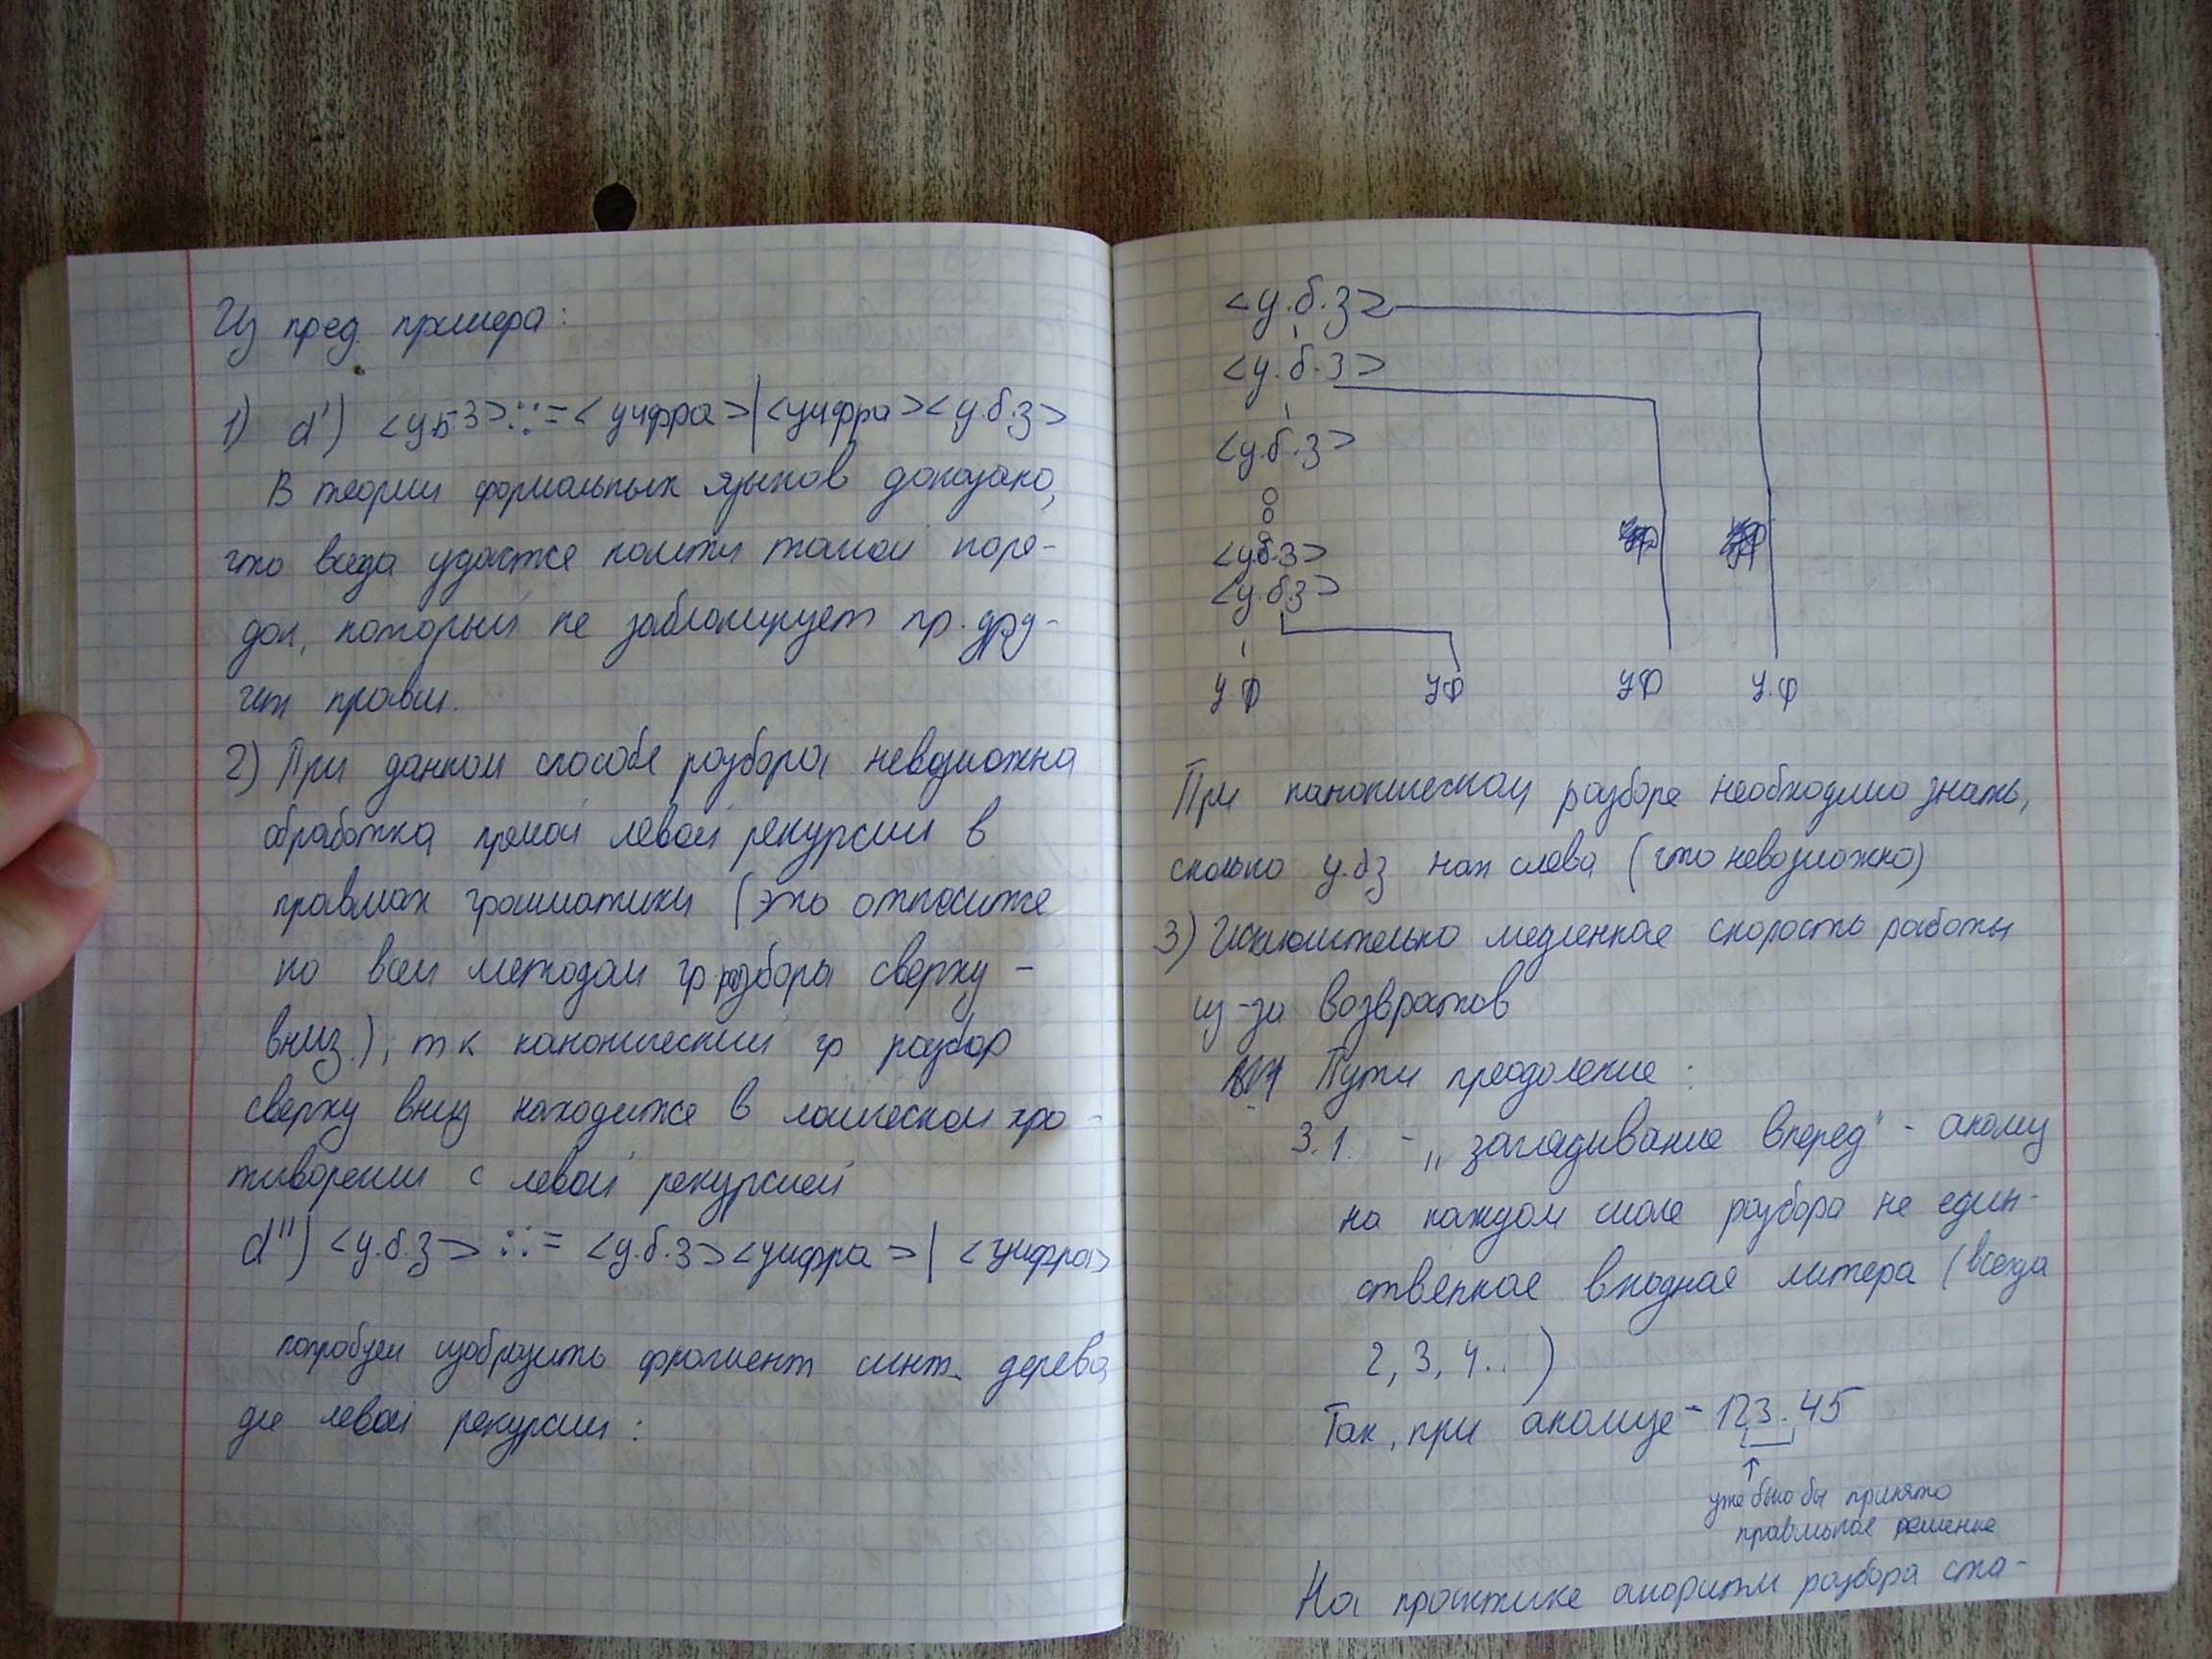 Из пред. примера:
1) d') <уБЗ>::=<цифра>|<цифра><у.б.з>
В теории формальных языков доказано,
что всегда удастся найти такой поря-
док, который не заблокирует пр. дру-
гих правил.
2) При данном способе разбора невозможна
обработка прямой левой рекурсии в
правилах грамматики (это относится
ко всем методам гр. разбора сверху-
вниз.), т к канонический гр разбор
сверху вниз находится в логическом про-
тиворечии с левой рекурсией
d") <у.б.з> ::= <у.б.з><цифра>|<цифра>
попробуем изобразить фрагмент синт. дерева
для левой рекурсии:
<у.б.з>
<у.б.з>
<у.б.з>
<у.б.з>
<у.б.з>
ц.ф цф цф ц.ф
При каноническом разборе необходимо знать,
сколько у.бз нах слева (что невозможно)
3) Исключительно медленная скорость работы
из-за возвратов
Пути преодоления:
3.1. - „заглядывание вперед" - анализ
на каждом шаге разбора не един-
ственная входная литера (всегда
2, 3, 4...)
Так, при анализе - 123.45
↑
уже было бы принято
правильное решение
На практике алгоритм разбора ста-